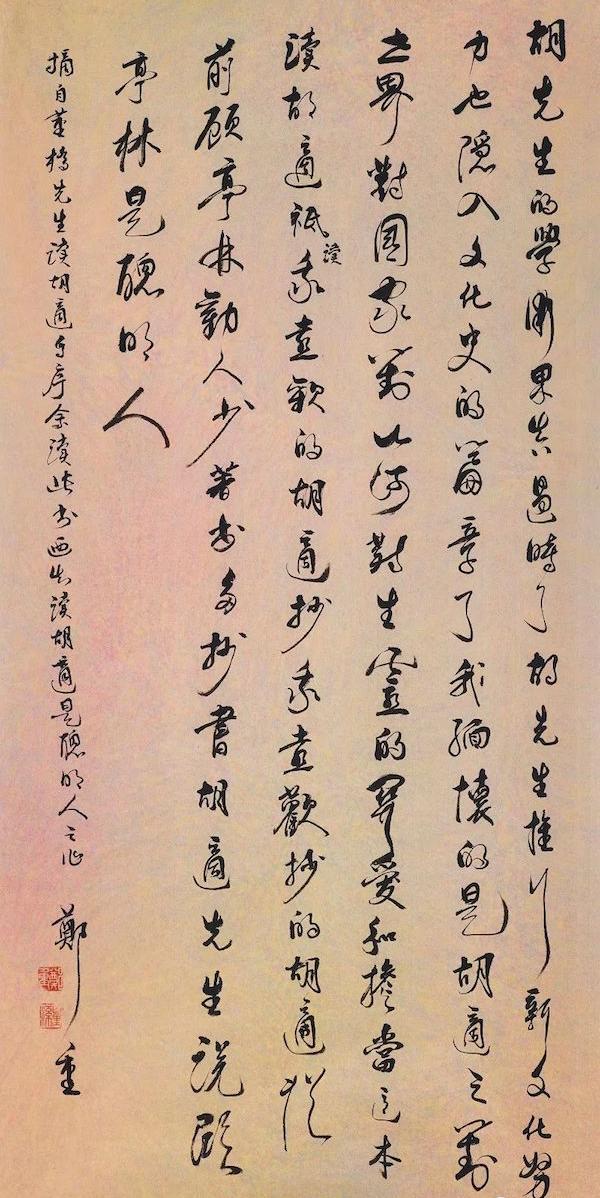 胡先生的學術果真過時了胡先生推行新文化努
力也隱入文化史的篇章了我緬懷的是胡適之對
世界對國家對山河對生靈的關愛和擔當這本
讀胡適祇讀我喜歡的胡適抄我喜歡抄的胡適從
前顧亭林勸人少著書多抄書胡適先生說顧
亭林是聰明人
摘自董橋先生讀胡適自序余讀此書而知讀胡適是聰明人之作 鄭重